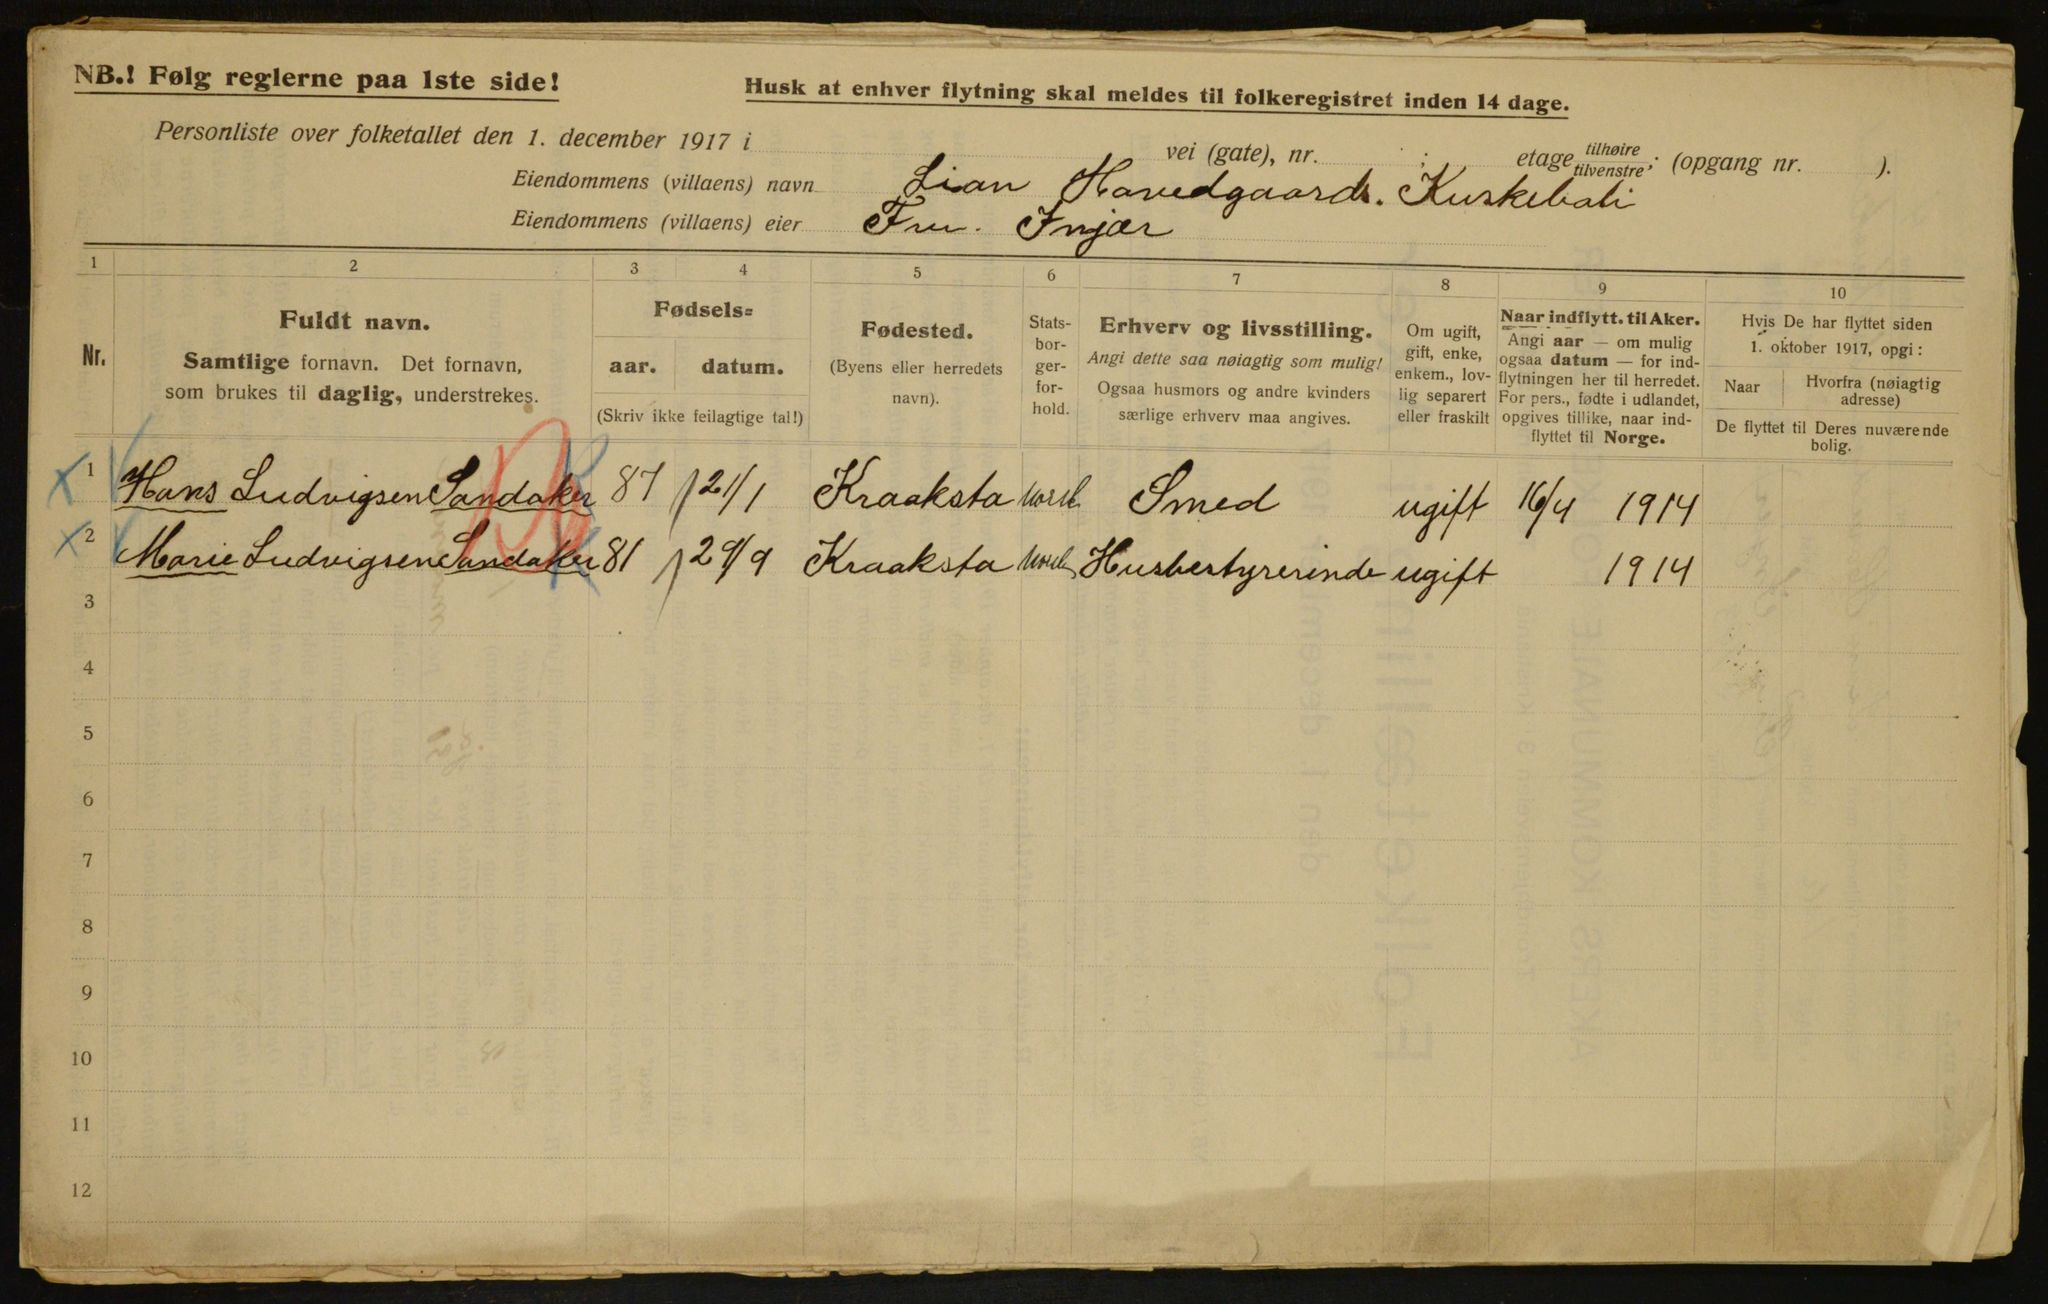 NB.! Følg reglerne paa 1ste side!
Husk at enhver flytning skal meldes til folkeregistret inden 14 dage.
Personliste over folketallet den 1. december 1917 i vei (gate), nr. ; etage tilhøire tilvenstre; (opgang nr. ).
Eiendommens (villaens) navn Lian Hovedgaard. Kuskeboli
Eiendommens (villaens) eier Fru.
1 2 3 4 5 6 7 8 9 10
Nr.
Fuldt navn.
Samtlige fornavn. Det fornavn,
som brukes til daglig, understrekes.
Fødsels=
aar. datum.
(Skriv ikke feilagtige tal!)
Fødested.
(Byens eller herredets
navn).
Stats-
bor-
ger-
for-
hold.
Erhverv og livsstilling.
Angi dette saa nøiagtig som mulig!
Ogsaa husmors og andre kvinders
særlige erhverv maa angives.
Om ugift,
gift, enke,
enkem., lov-
lig separert
eller fraskilt
Naar indflytt. til Aker.
Angi aar — om mulig
ogsaa datum — for ind-
flytningen her til herredet.
For pers., fødte i utlandet,
opgives tillike, naar ind-
flyttet til Norge.
Hvis De har flyttet siden
1. oktober 1917, opgi:
Naar
Hvorfra (nøiagtig
adresse)
De flyttet til Deres nuværende
bolig.
1 Hans Ludvigsen Sandaker 87 21/1 Kraaksta norsk Smed ugift 16/4 1914
2 Marie Ludvigsen Sandaker 81 29/9 Kraaksta norsk Husbestyrerinde ugift 1914
3
4
5
6
7
8
9
10
11
12